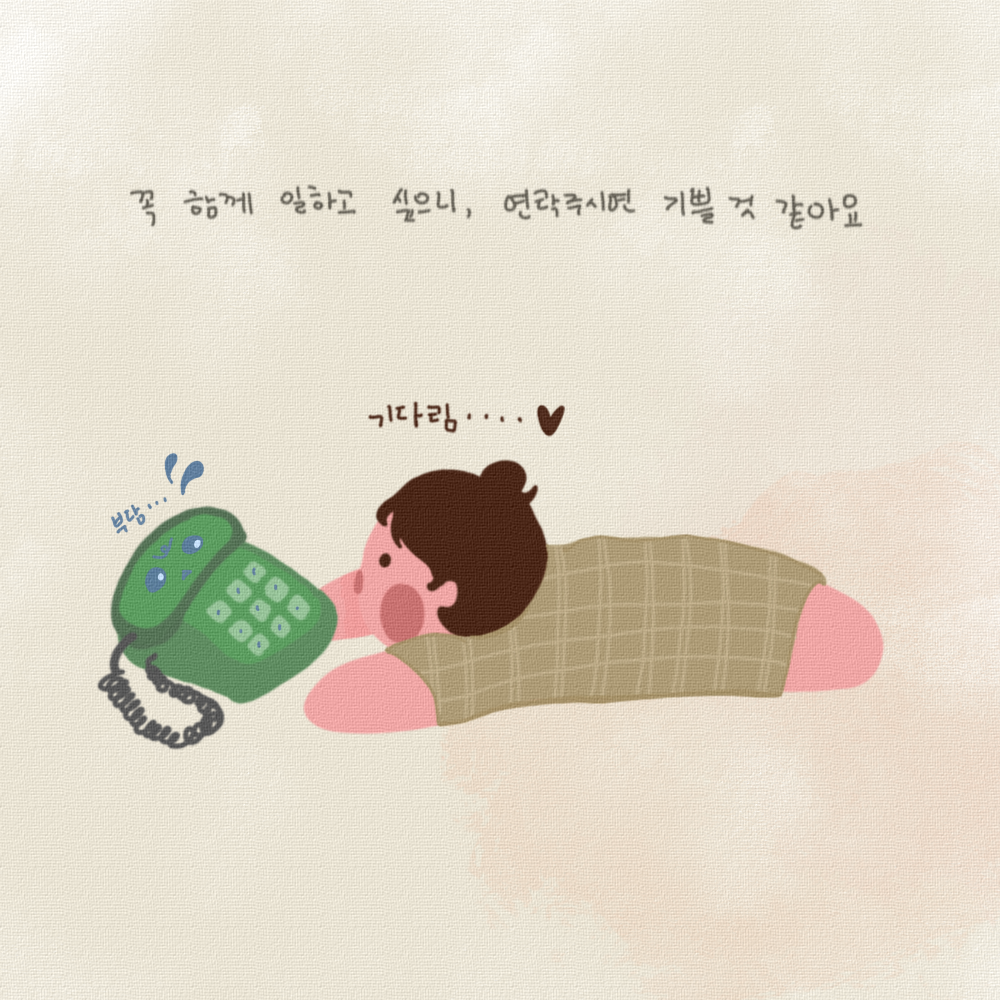 꼭 함께 일하고 싶으니, 연락주시면 기쁠 것 같아요
기다림····♥
부담···